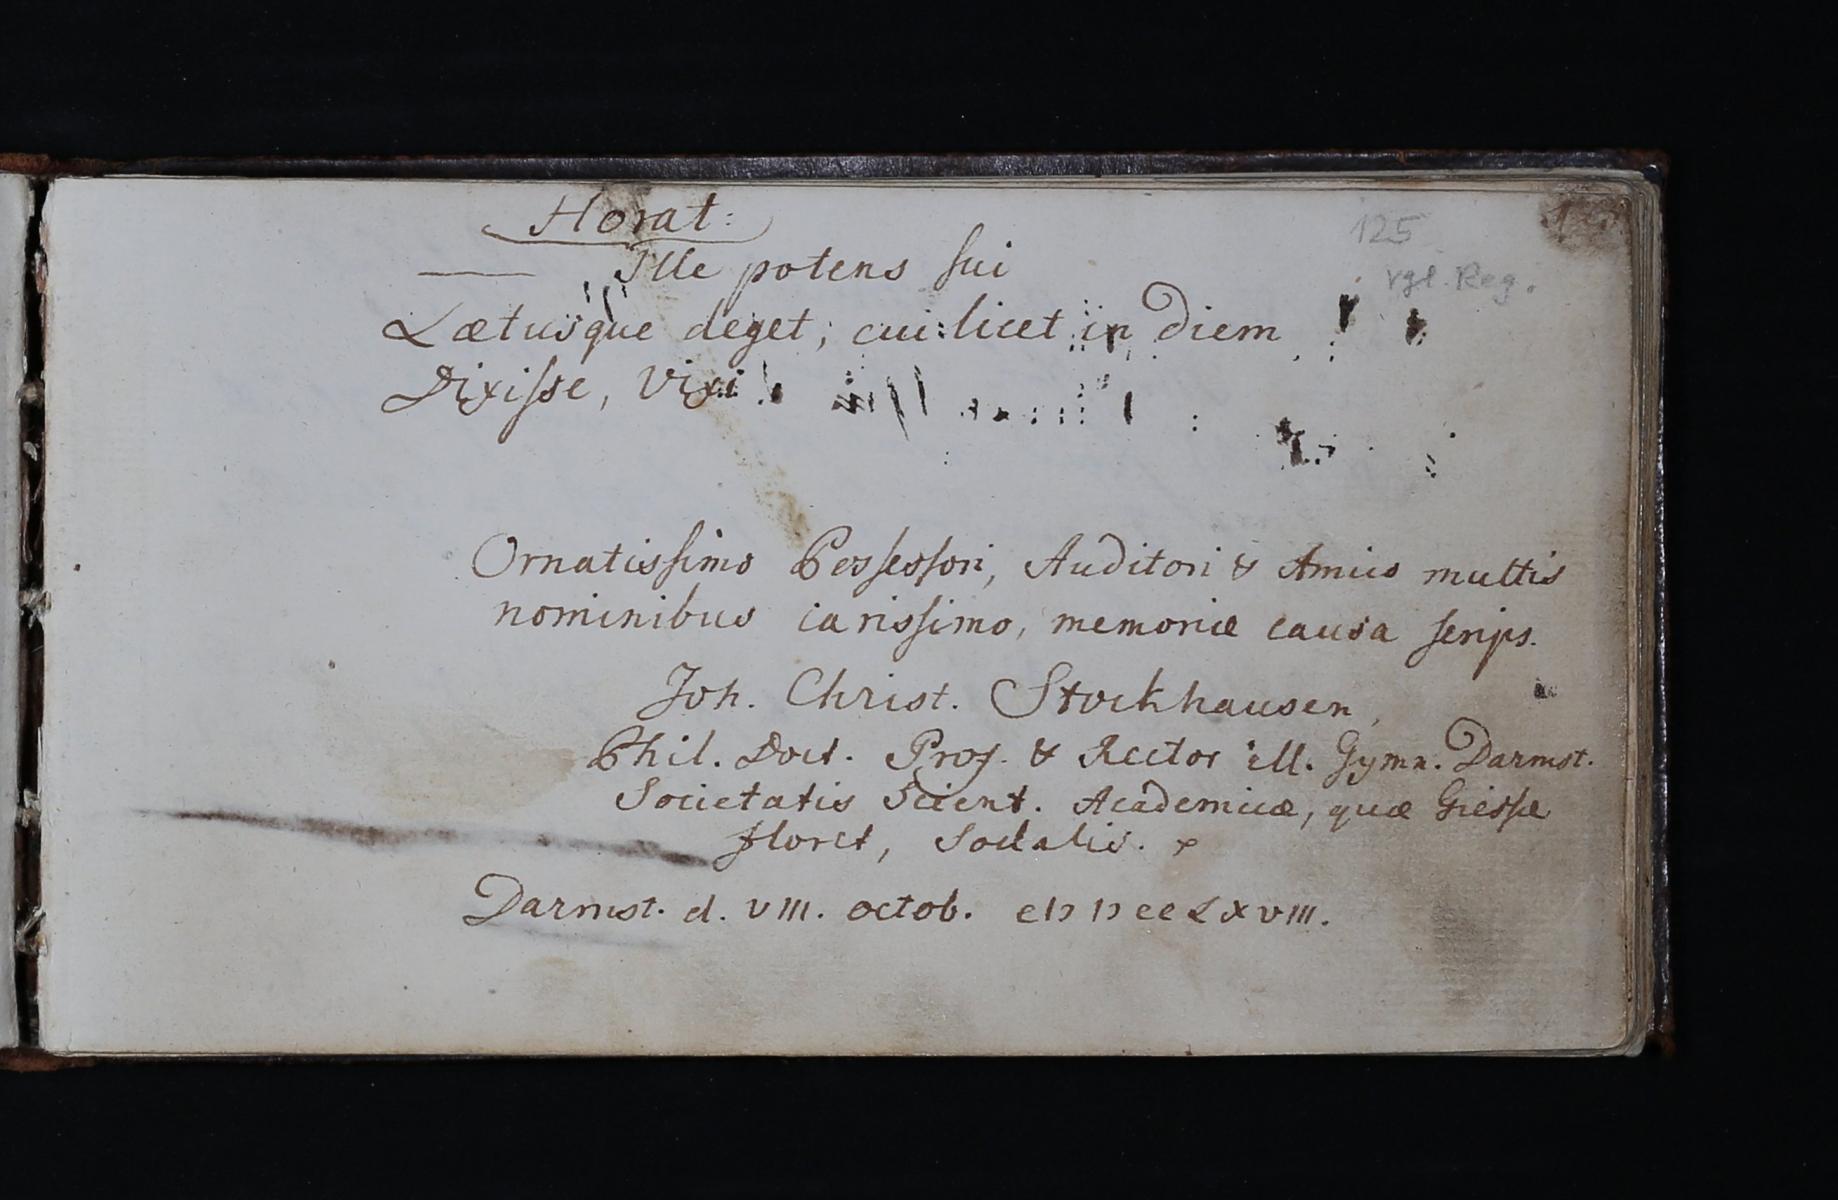 Horat:
—— Ille potens sui
Lætusque deget, cui licet in diem
Dixisse, Vixi
125
vgl. Reg.
Ornatissimo Possessori, Auditori & Amico multis
nominibus carissimo, memoriæ causa scrips.
Joh. Christ. Stockhausen,
Phil. Doct. Prof. & Rector ill. Gymn. Darmst.
Societatis Scient. Academicæ, quæ Giessæ
floret, Sodalis.
Darmst. d. VIII. octob. cIↃ IↃ cc LXVIII.